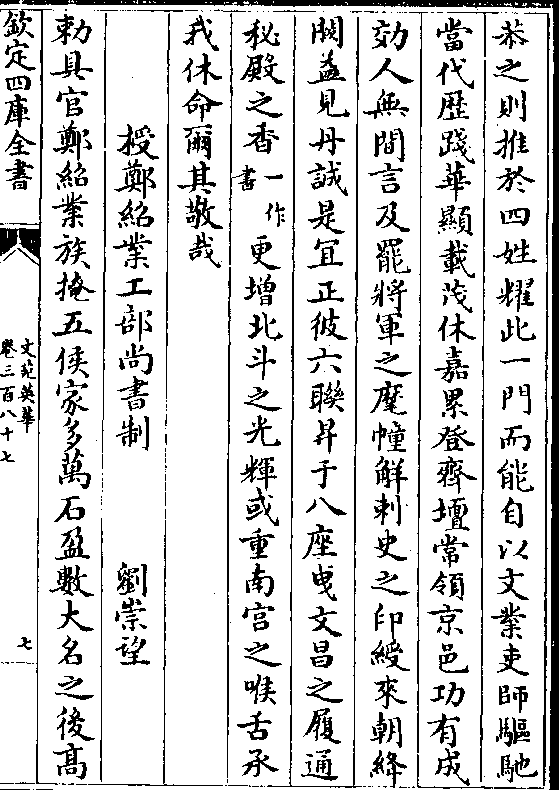 恭之則推於四姓耀此一門而能自以文業吏師驅馳
當代歴踐華顯載茂休嘉累登齊壇常領京邑功有成
効人無間言及罷將軍之麾幢解刺史之印綬來朝絳
闕益見丹誠是宜正彼六聯昇于八座曵文昌之履通
秘殿之香一作書更增北斗之光輝或重南宫之喉舌承
我休命爾其敬哉
授鄭紹業工部尚書制 劉崇望
勅具官鄭紹業族掩五侯家多萬石盈數大名之後髙
欽定四庫全書
文苑英華
卷三百八十七
七